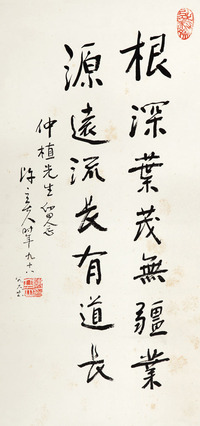 根深葉茂無疆業
源遠流長有道長
仲植先生留念
時年九十八